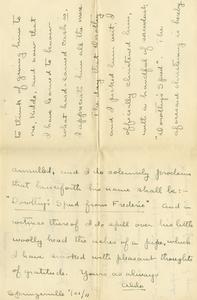 to think of giving him to
me, Kiddo, and now that
I have learned to know
what hard-earned cash is,
I appreciate him all the more.
The day that Dorothy
and I picked him out, I
officially christened him,
with a handful of
"Dorothy's Spud". The
aforesaid christening is hereby
annulled, and I do solemnly proclaim
that henceforth his name shall be:-
"Dorothy's Spud from Frederic". And in
witness thereof I do spill over his little
woolly head the ashes of a pipe, which
I have smoked with pleasant thoughts
of gratitude. Yours as always
Aldo
Springerville